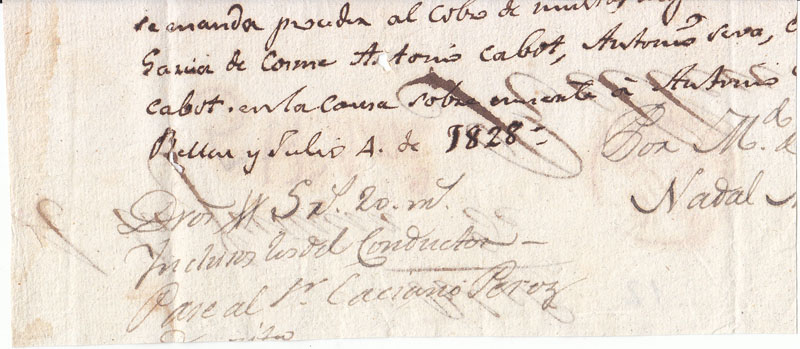 se manda proceder al Cobro de multas
Garcia de Cosme Antonio Cabot, Antonio Sera,
Cabot. en la Causa sobre muerte à Antonio
Bellver y Julio 4. de 1828=
Por M.d d
Nadal
Dros 5 rs. 20. ms.
Inclusos los del Conductor
Pase al Sr. Caciano Perez